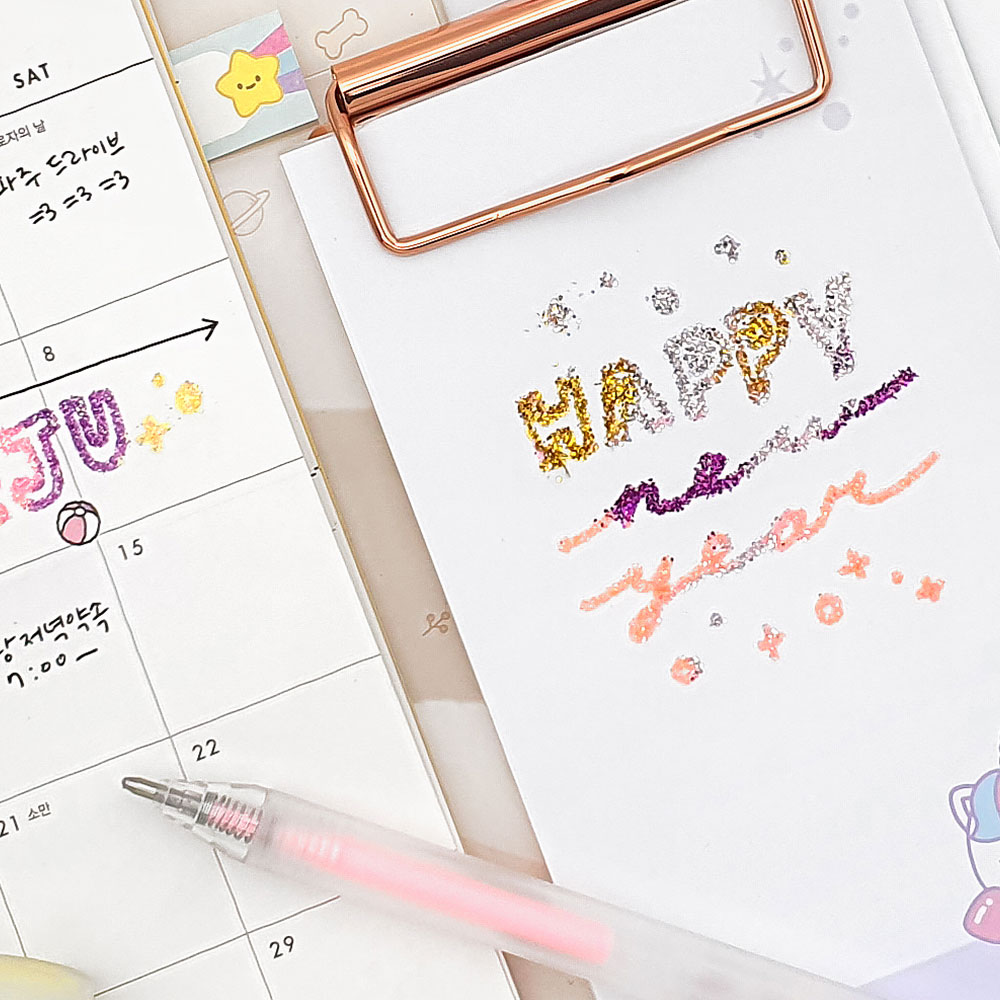 SAT
로자의 날
파주 드라이브
=3 =3 =3
8
JU
15
저녁약속
7:00 —
22
21 소만
29
HAPPY
new
year